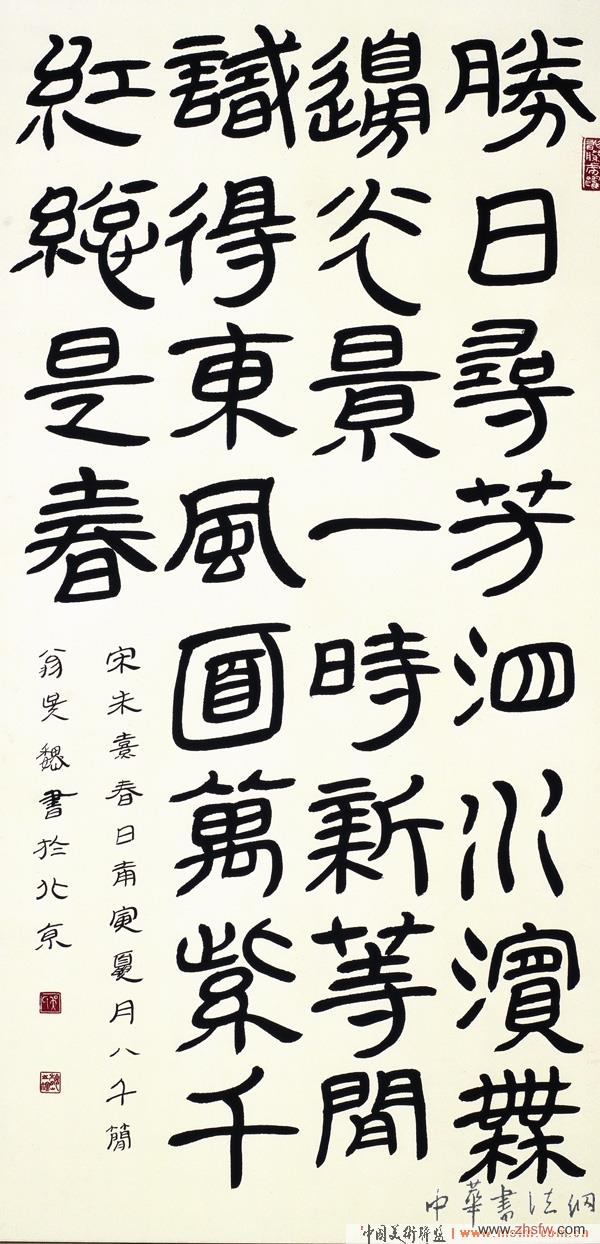 勝日尋芳泗水濱無
邊光景一時新等閒
識得東風面萬紫千
紅總是春
宋朱熹春日庚寅夏月八千簡
翁吳魏書於北京
中華書法網
中國美術聯盟
www.zhsfw.com